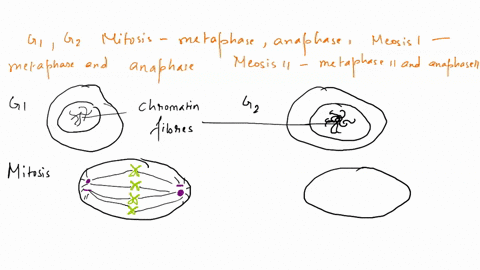 G1, G2 Mitosis - metaphase, anaphase, Meosis I -
metaphase and anaphase Meosis II - metaphase II and anaphase II
G1 chromatin fibres G2
Mitosis